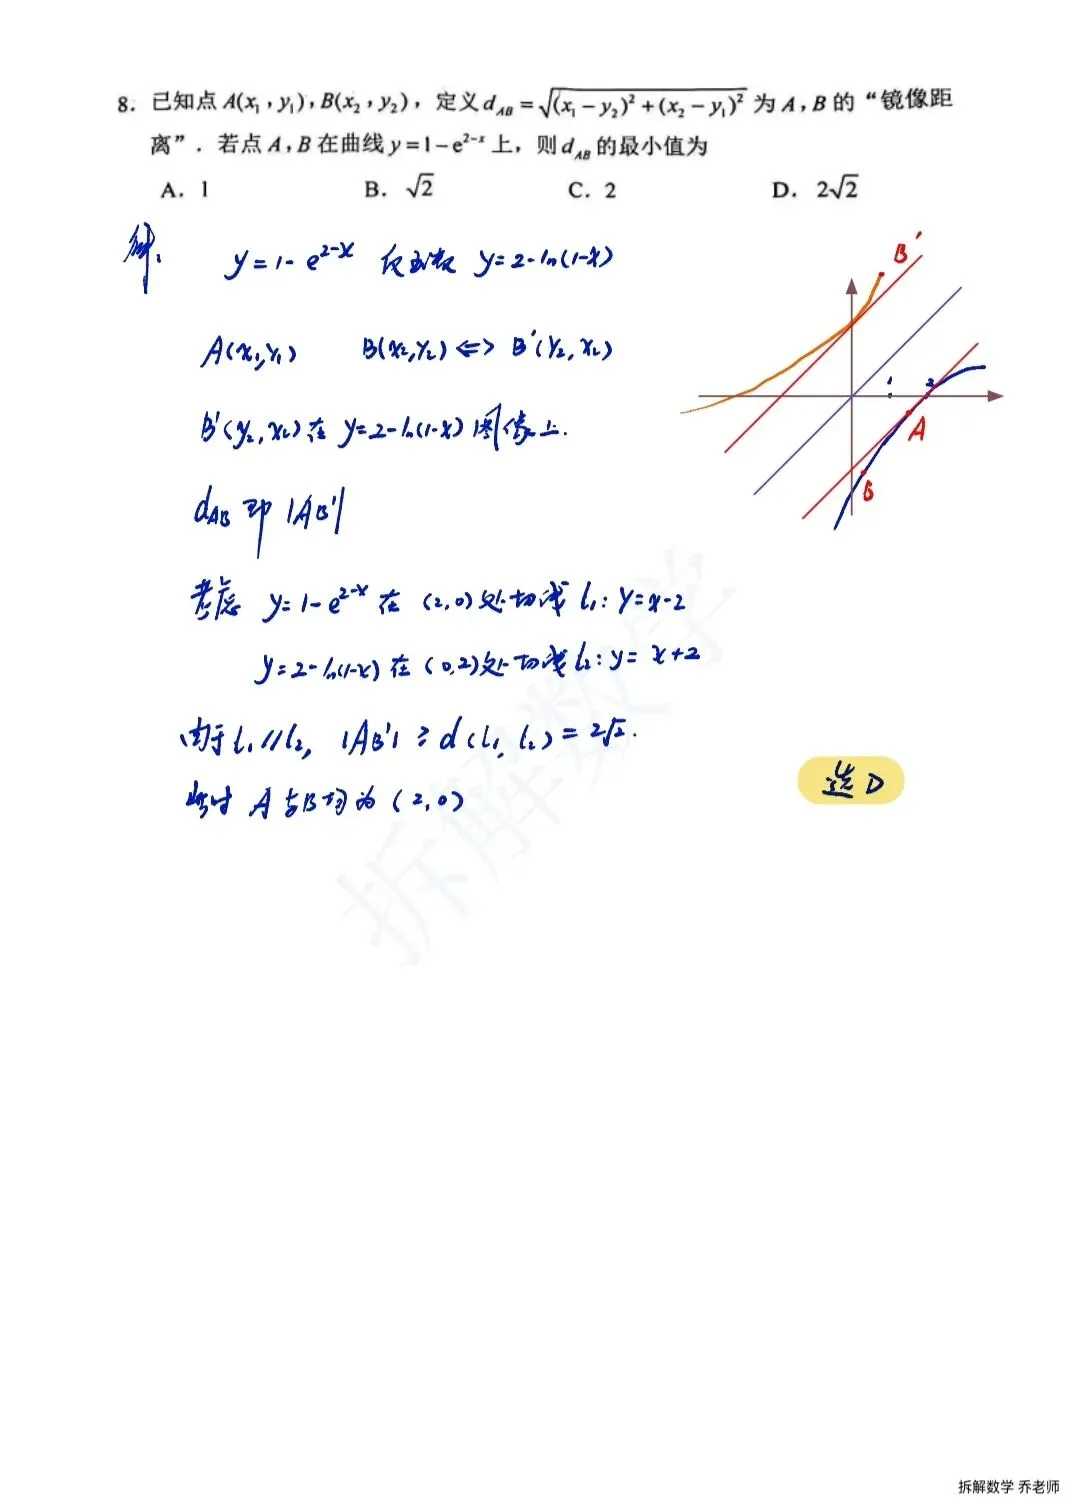 8. 已知点 A(x₁, y₁), B(x₂, y₂), 定义 d_{AB} = √((x₁ − y₂)² + (x₂ − y₁)²) 为 A, B 的“镜像距
离”. 若点 A, B 在曲线 y = 1 − e^{2−x} 上, 则 d_{AB} 的最小值为
A. 1 B. √2 C. 2 D. 2√2
解:
y = 1 - e^{2-x} 反函数 y = 2 - ln(1-x)
A(x₁, y₁) B(x₂, y₂) <=> B'(y₂, x₂)
B'(y₂, x₂) 在 y = 2 - ln(1-x) 图像上.
d_{AB} 即 |AB'|
考虑 y = 1 - e^{2-x} 在 (2,0) 处切线 l₁: y = x-2
y = 2 - ln(1-x) 在 (0,2) 处切线 l₂: y = x+2
由于 l₁ // l₂, |AB'| ≥ d(l₁, l₂) = 2√2.
此时 A 与 B 均为 (2,0)
选 D
B'
1
2
A
B
拆解数学
拆解数学 乔老师